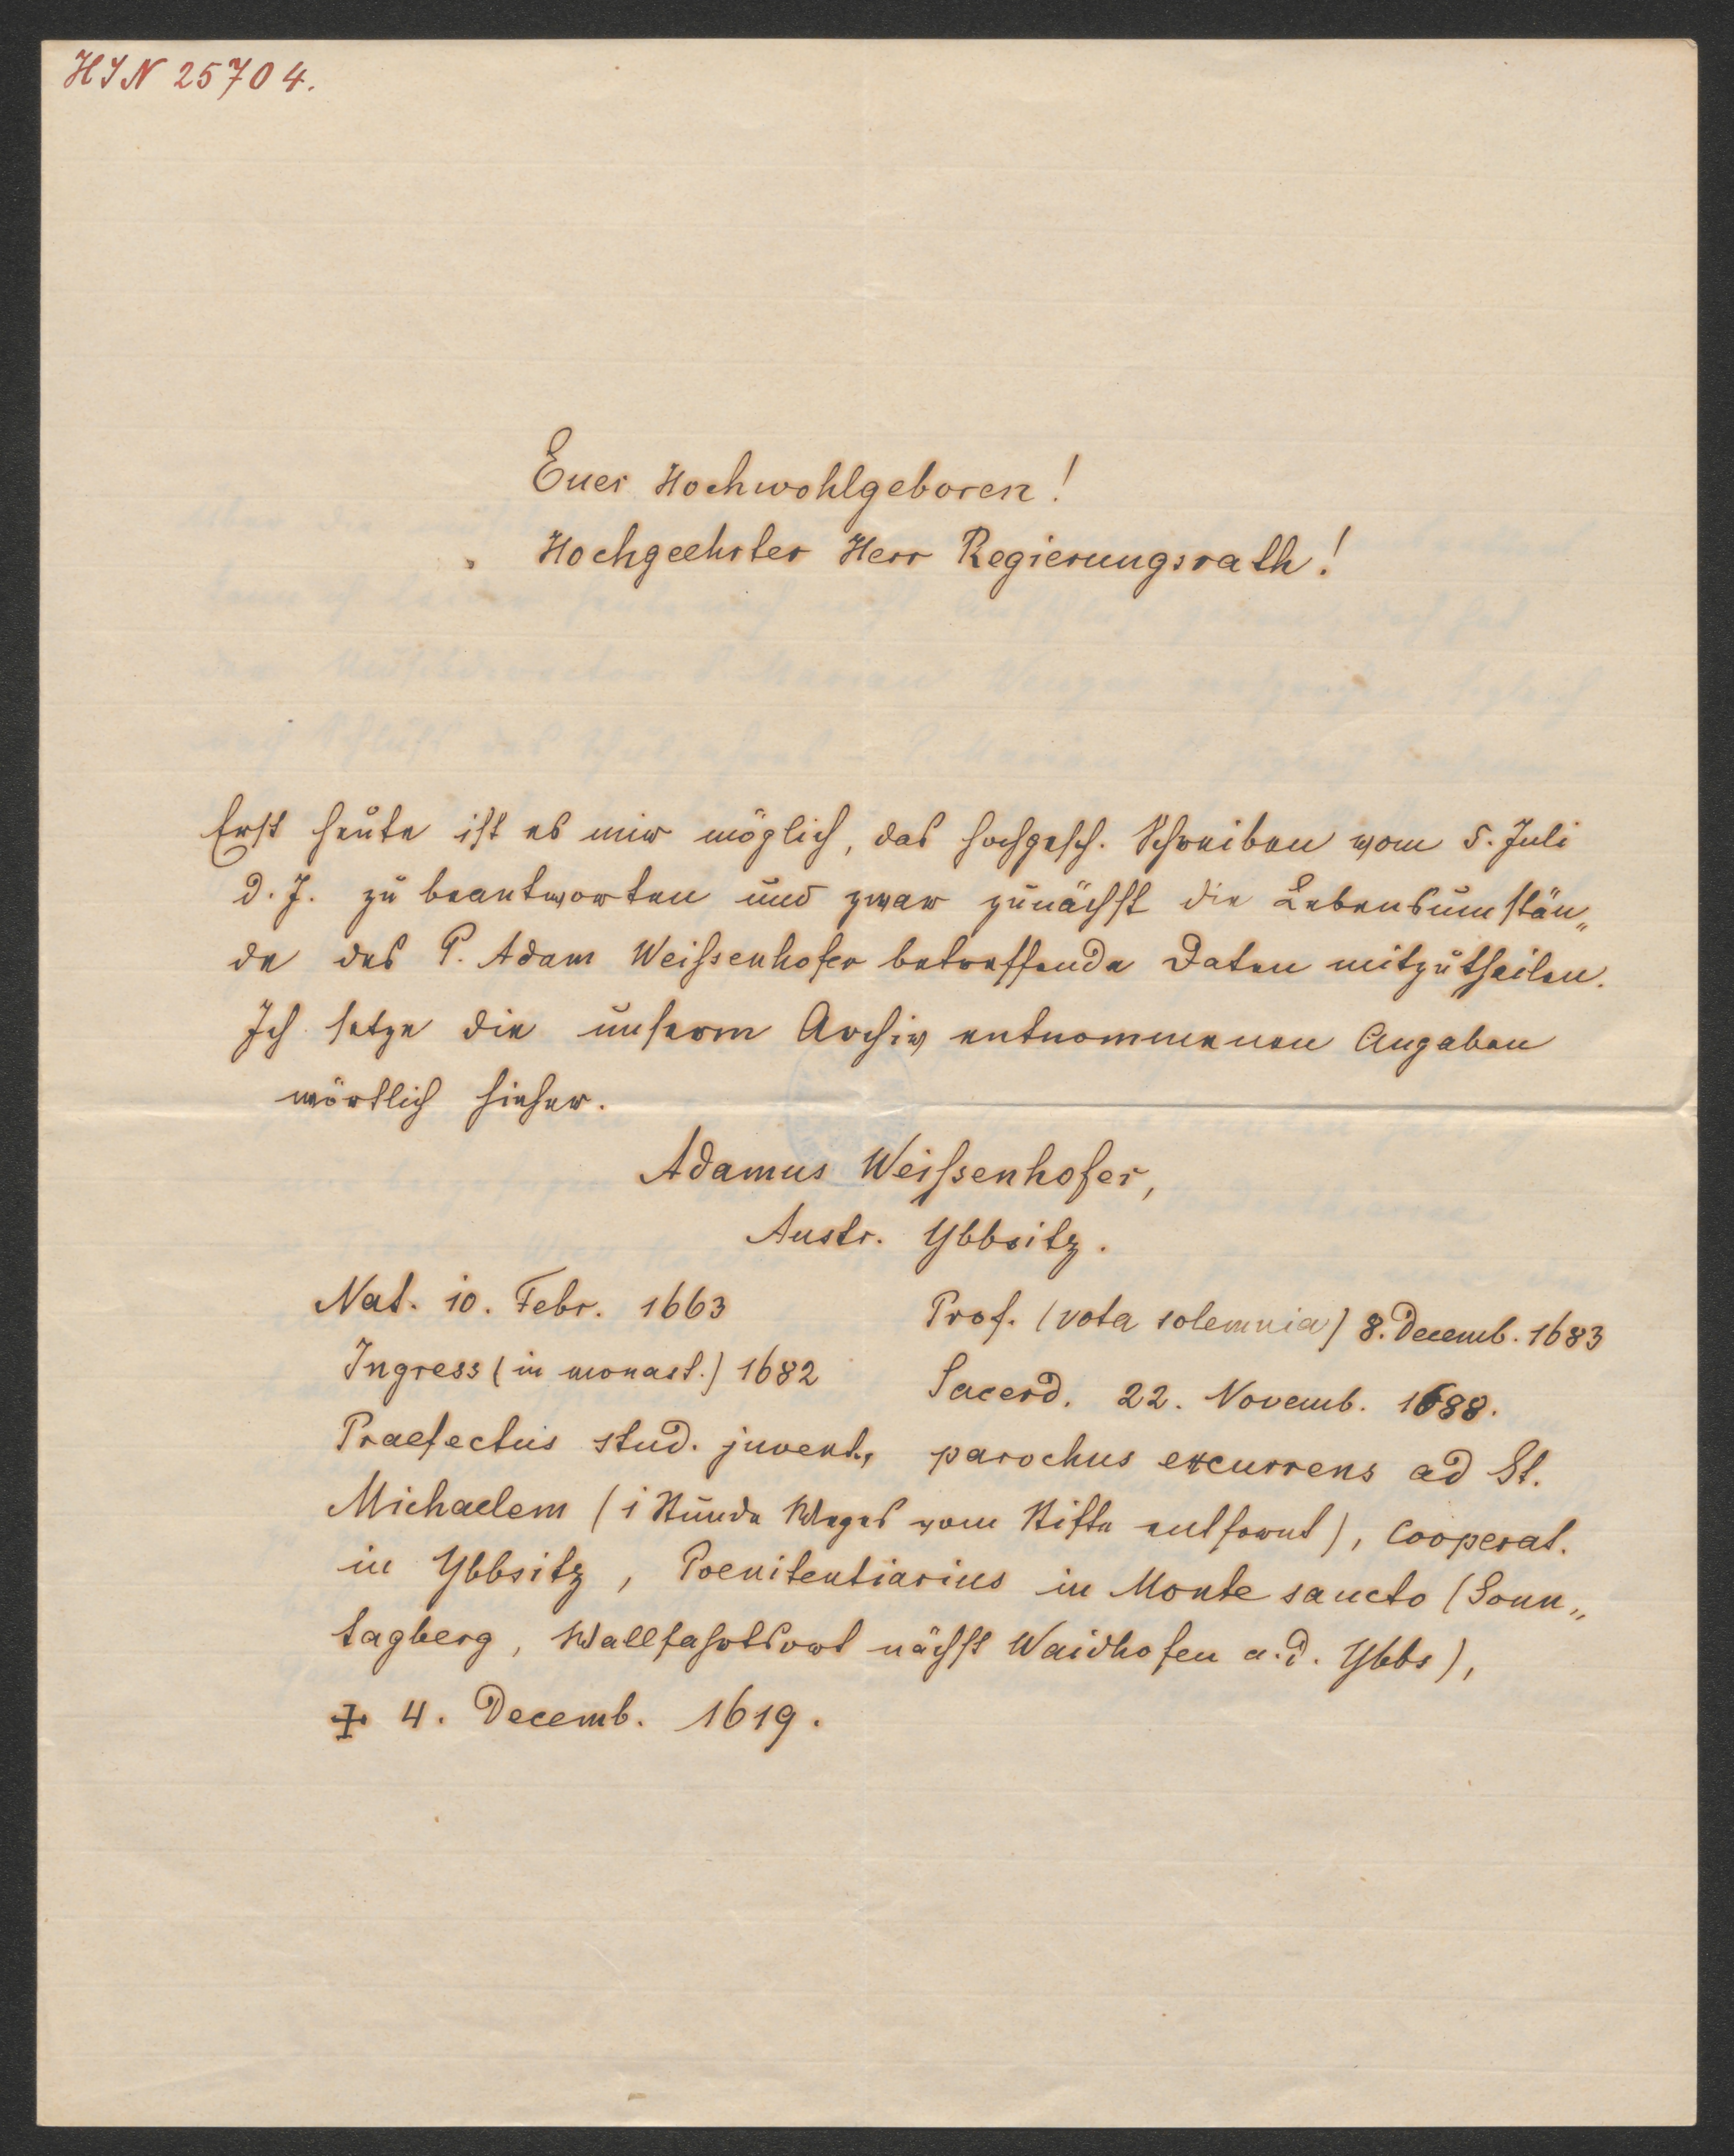 HIN 25704.
Euer Hochwohlgeboren!
Hochgeehrter Herr Regierungsrath!
Erst heute ist es mir möglich, das hochgesch. Schreiben vom 5. Juli
d. J. zu beantworten und zwar zunächst die Lebensumstän„
de des P. Adam Weißenhofer betreffende Daten mitzutheilen.
Ich setze die unserm Archiv entnommenen Angaben
wörtlich hieher.
Adamus Weißenhofer,
Austr. Ybbsitz.
Nat. 10. Febr. 1663 Prof. (vota solemnia) 8. Decemb. 1683
Ingress (in monast.) 1682 Sacerd. 22. Novemb. 1688.
Praefectus stud. juvent., parochus excurrens ad St.
Michaelem (1 Stunde Weges vom Stifte entfernt), Cooperat.
in Ybbsitz, Poenitentiarius in Monte sancto (Sonn„
tagberg, Wallfahrtsort nächst Waidhofen a. d. Ybbs),
‡ 4. Decemb. 1619.